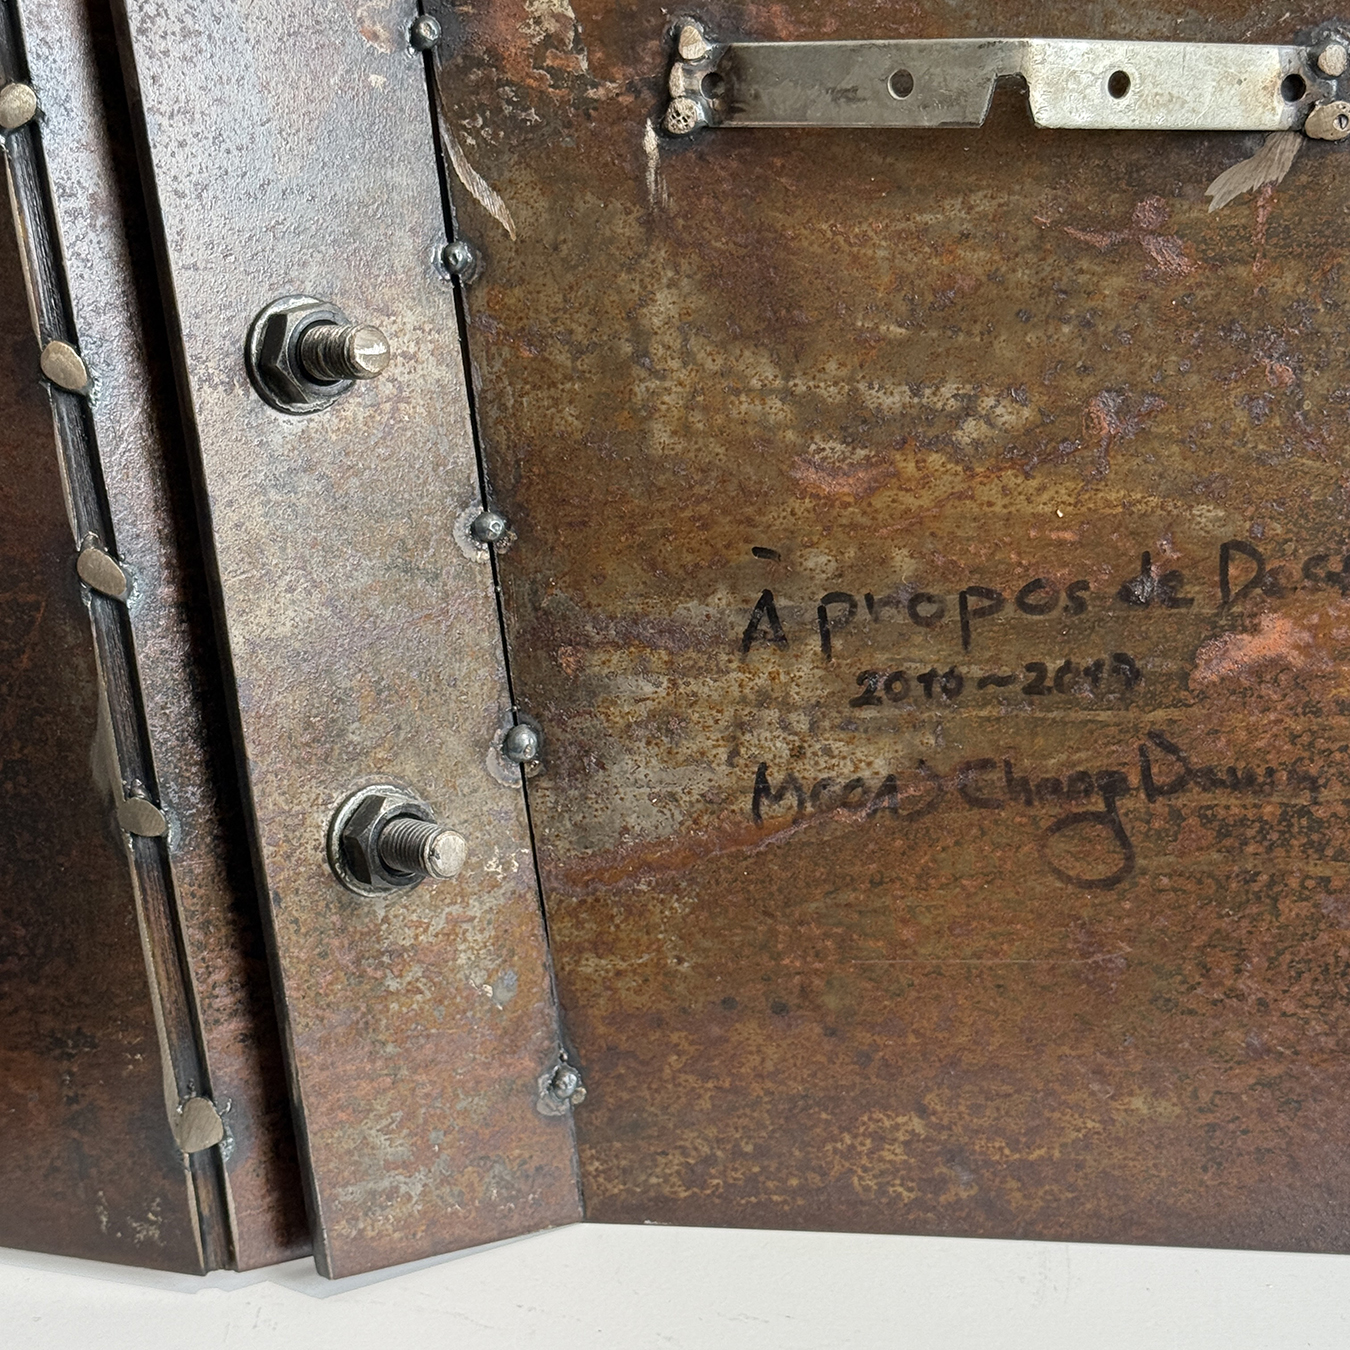 À propos de
2010~2013
Moon Chang Dawn